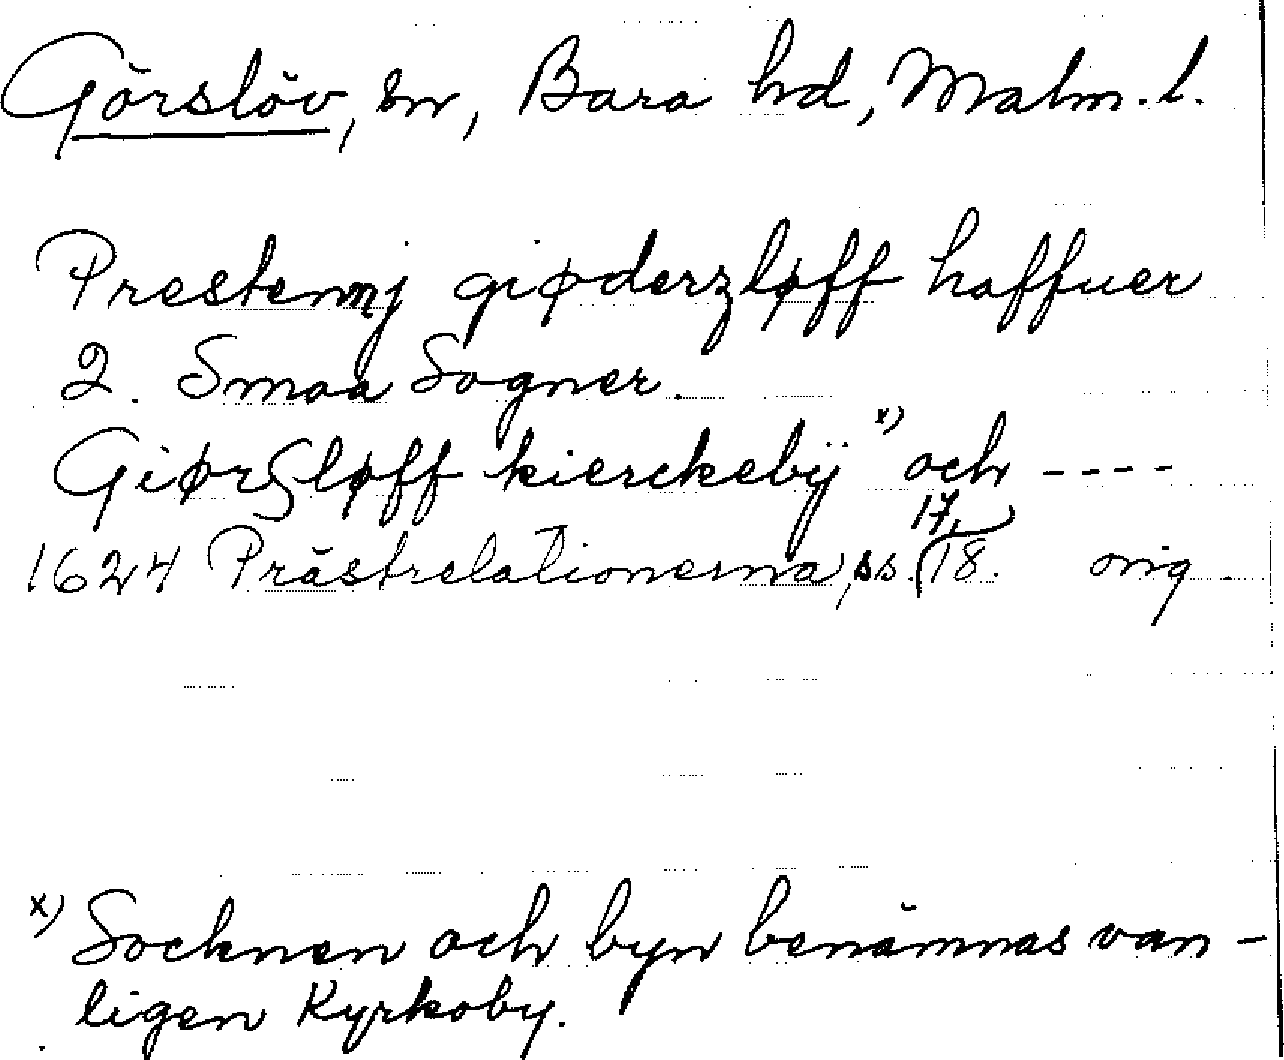 Görslöv, sn, Bara hd, Malm. l.
Prestennj giøderzløff haffuer
2. Smaa Sogner.
Giørsløff kierckebÿ x) och ----
1624 Prästrelationerna, ss. 17, 18. orig.
x) Socknen och byn benämnas van-
ligen Kyrkoby.